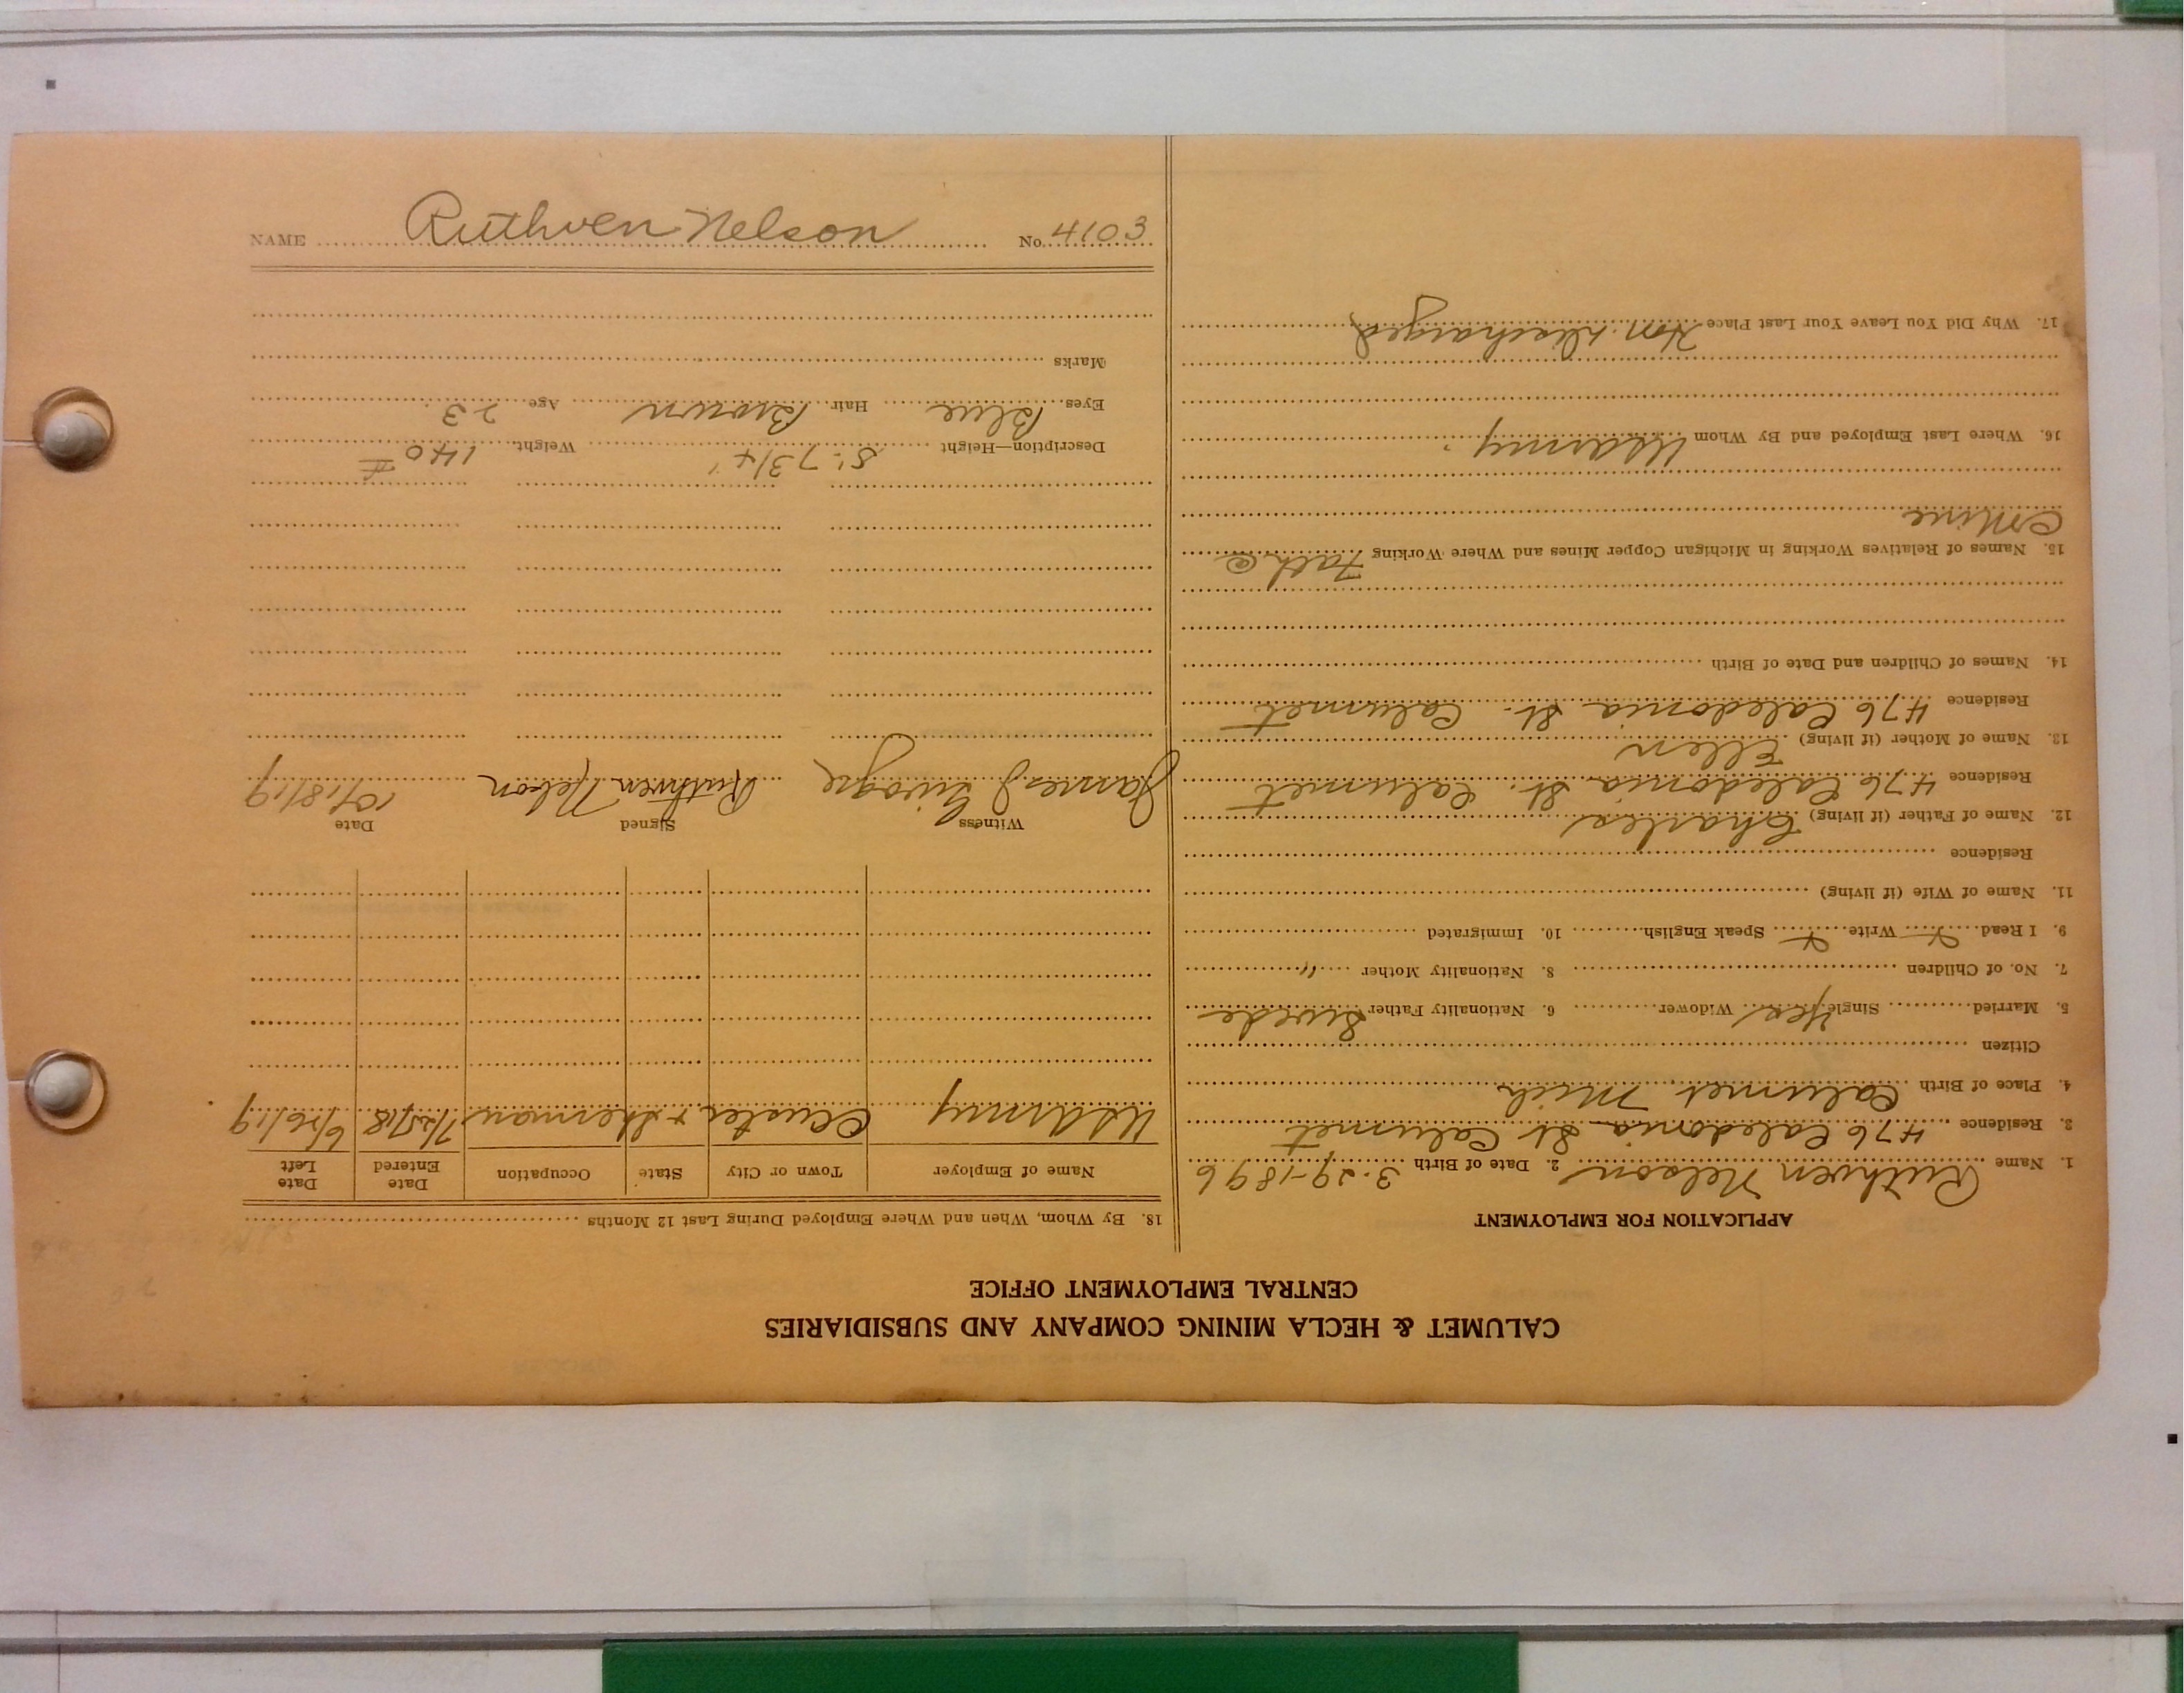 CALUMET & HECLA MINING COMPANY AND SUBSIDIARIES
CENTRAL EMPLOYMENT OFFICE
APPLICATION FOR EMPLOYMENT
1. Name Ruthven Nelson 2. Date of Birth 3-29-1896
3. Residence 476 Caledonia St Calumet
4. Place of Birth Calumet Mich
Citizen
5. Married Single Yes Widower 6. Nationality Father Swede
7. No. of Children 8. Nationality Mother "
9. I Read Write Speak English 10. Immigrated
11. Name of Wife (if living)
Residence
12. Name of Father (if living) Charles
Residence 476 Caledonia St. Calumet
13. Name of Mother (if living) Ellen
Residence 476 Caledonia St. Calumet
14. Names of Children and Date of Birth
15. Names of Relatives Working in Michigan Copper Mines and Where Working Fath @
C Mine
16. Where Last Employed and By Whom US Army
17. Why Did You Leave Your Last Place Hon. Discharged
18. By Whom, When and Where Employed During Last 12 Months
Name of Employer Town or City State Occupation Date Entered Date Left
US Army Custer + Sherman 7/25/18 6/26/19
Witness Signed Date
James J Ruthven Nelson 10/18/19
Description—Height 5'-7 3/4" Weight 140 #
Eyes Blue Hair Brown Age 23
Marks
NAME Ruthven Nelson No. 4103